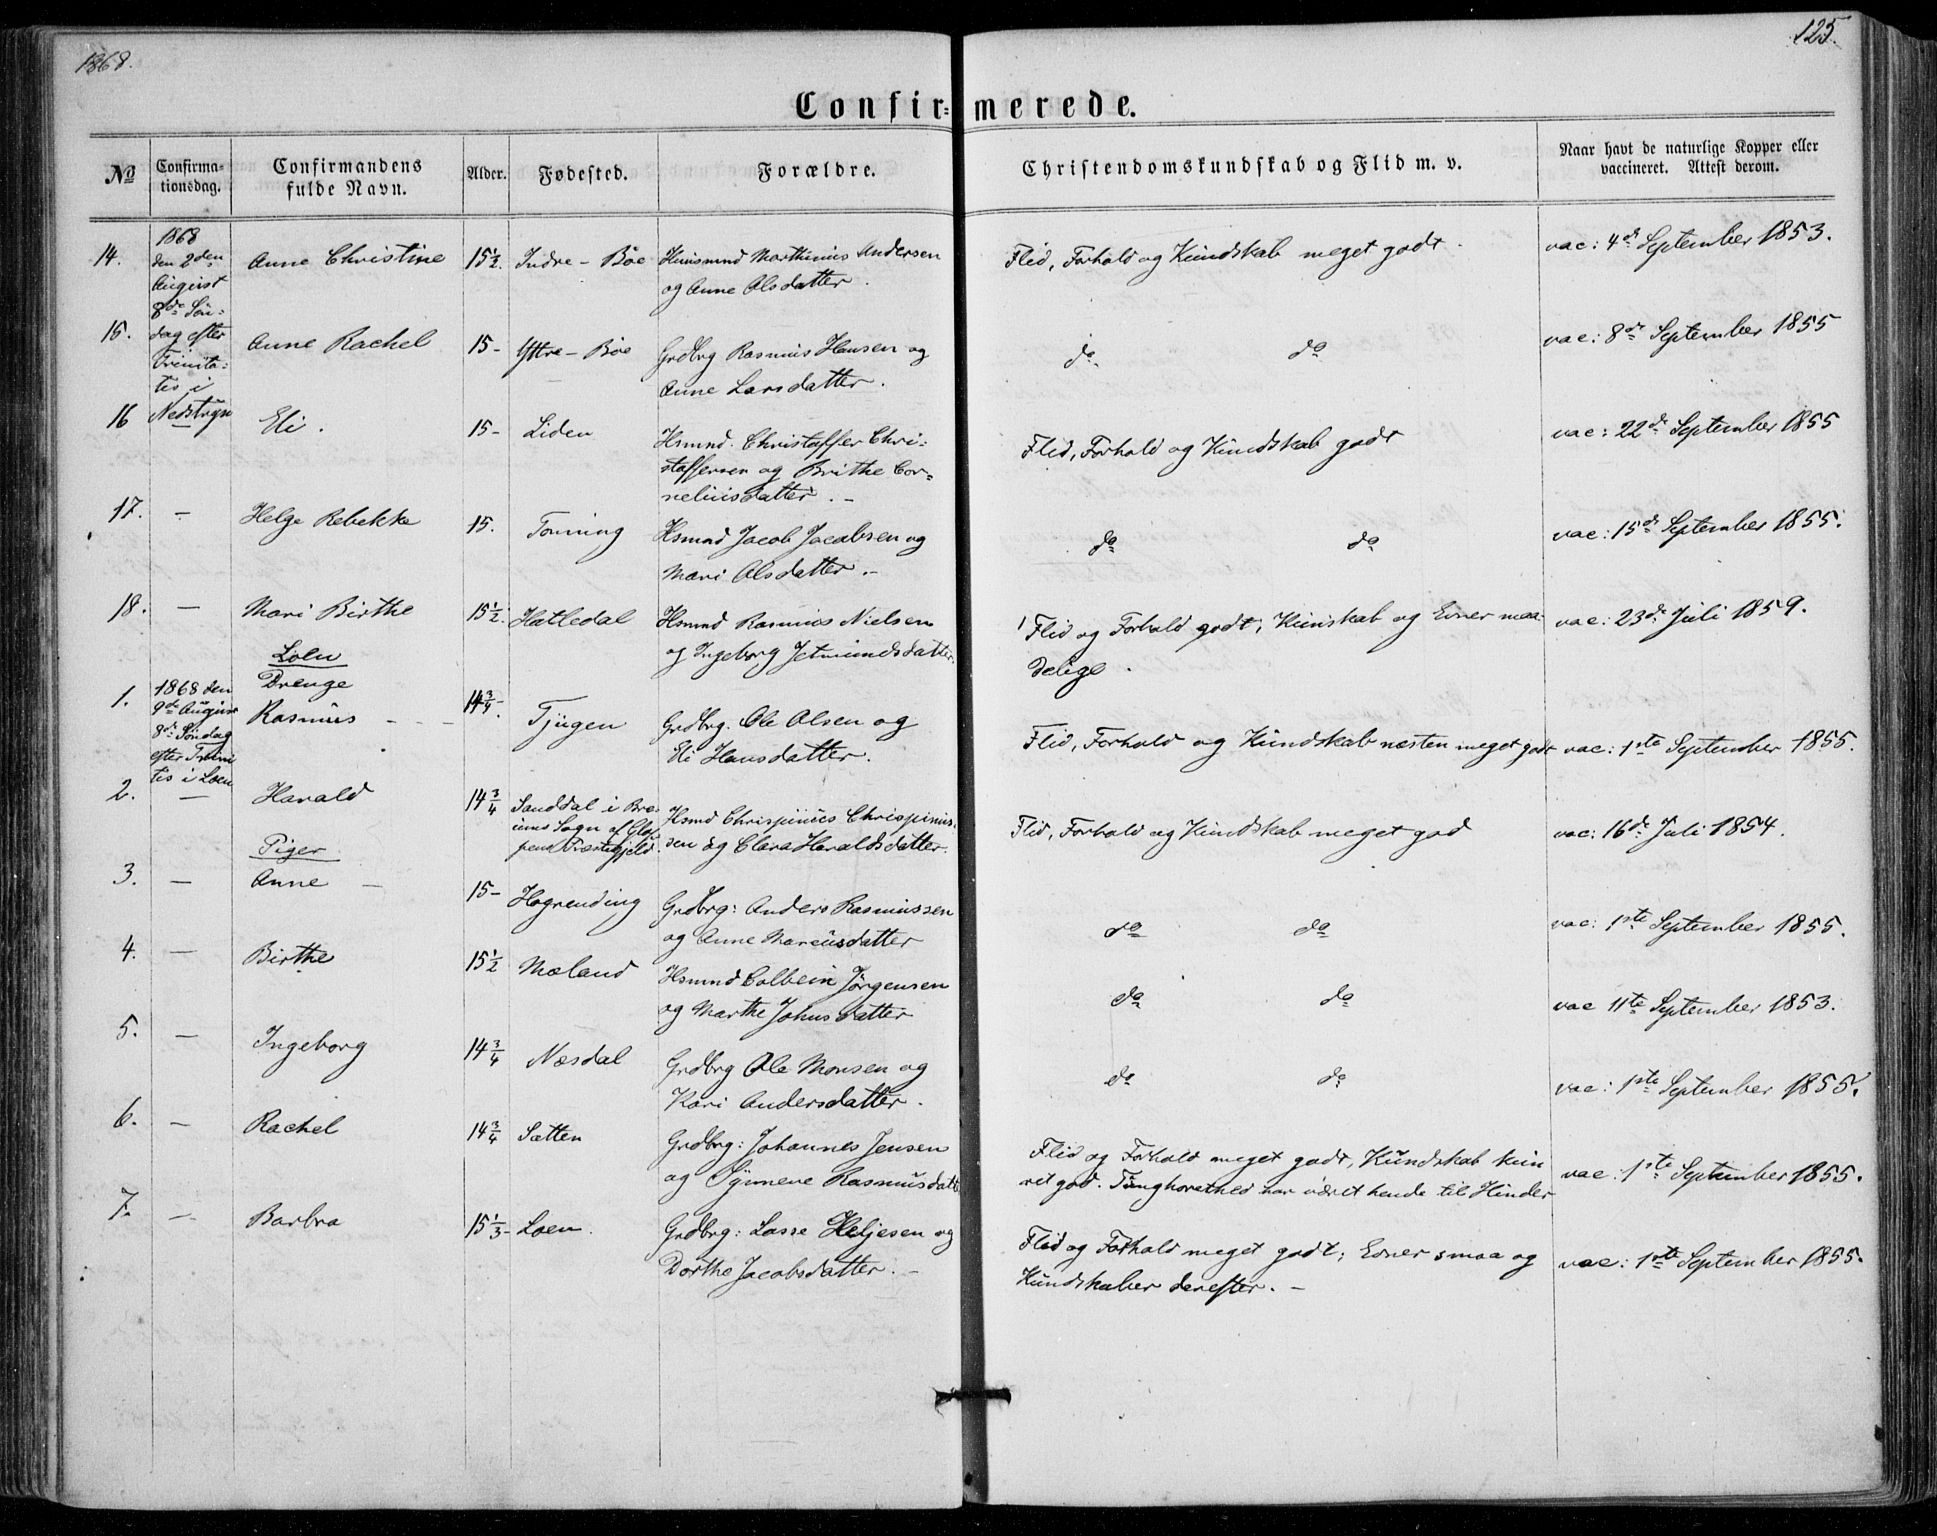 1868.
125.
Confirmerede.
No
Confirmationsdag.
Confirmandens fulde Navn.
Alder.
Fødested.
Forældre.
Christendomskundskab og Flid m. v.
Naar havt de naturlige Kopper eller vaccineret. Attest derom.
14.
1868
den 2den
August
8de Søn-
dag efter
Trinita-
tis i
Nedstryn
Anne Christine
15½.
Indre-Böe
Huusmnd Marthinus Andersen
og Anne Olsdatter.
Flid, Forhold og Kundskab meget godt.
vac: 4de September 1853.
15.
Anne Rachel
15-
Yttre-Böe
Grdbrg Rasmus Hansen og
Anne Larsdatter.
do do
vac: 8de September 1855
16
Eli.
15-
Liden
Hsmnd. Christoffer Chri-
stoffersen og Brithe Cor-
neliusdatter.-
Flid, Forhold og Kundskab godt
vac: 22de September 1855
17.
-
Helge Rebekke
15.
Tonning
Hsmnd Jacob Jacobsen og
Mari Olsdatter.-
do do
vac: 15de September 1855.
18.
-
Mari Birthe
15½.
Hatledal
Hsmnd Rasmus Nielsen
og Ingeborg Jetmundsdatter.
Flid og Forhold godt, Kunskab og Evner maa-
delige.
vac: 23de Juli 1859.
Loen
Drenge
1.
1868 den
9de August
8de Søndag
efter Trini
tis i Loen
Rasmus - -
14¾.
Tjugen
Grdbrg. Ole Olsen og
Eli Hansdatter.
Flid, Forhold og Kundskab næsten meget godt
vac: 1ste September 1855.
2.
-
Harald
14¾
Sanddal i Bre-
ums Sogn af Glop-
pens Præstegjeld.
Hsmd Chrispinus Chrispinus-
sen og Clara Haraldsdatter.
Flid, Forhold og Kundskab meget god
vac: 16de Juli 1854.
Piger
3.
-
Anne -
15-
Hogrending
Grdbrg: Anders Rasmussen
og Anne Marcusdatter
do do
vac: 1ste September 1855.
4.
-
Birthe
15½
Mæland
Hsmnd Colbein Jörgensen
og Marthe Johnsdatter
do do
vac 11te September 1853.
5.
-
Ingeborg
14¾
Næsdal
Grdbrg Ole Monsen og
Kari Andersdatter.
do do
vac: 1ste September 1855.
6.
-
Rachel
14¾
Sætten
Grdbrg: Johannes Jensen
og Synneve Rasmusdatt
Flid og Forhold meget godt, Kundskab kun
vac: 1ste September 1855.
god. Tunghorethed har været hende til Hinder
7.
-
Barbra
15⅓-
Loen.
Grdbrg: Lasse Heljesen og
Dorthe Jacobsdatter.-
Flid og Forhold meget godt; Evner smaa og
Kundskaber derefter.-
vac: 1ste September 1855.